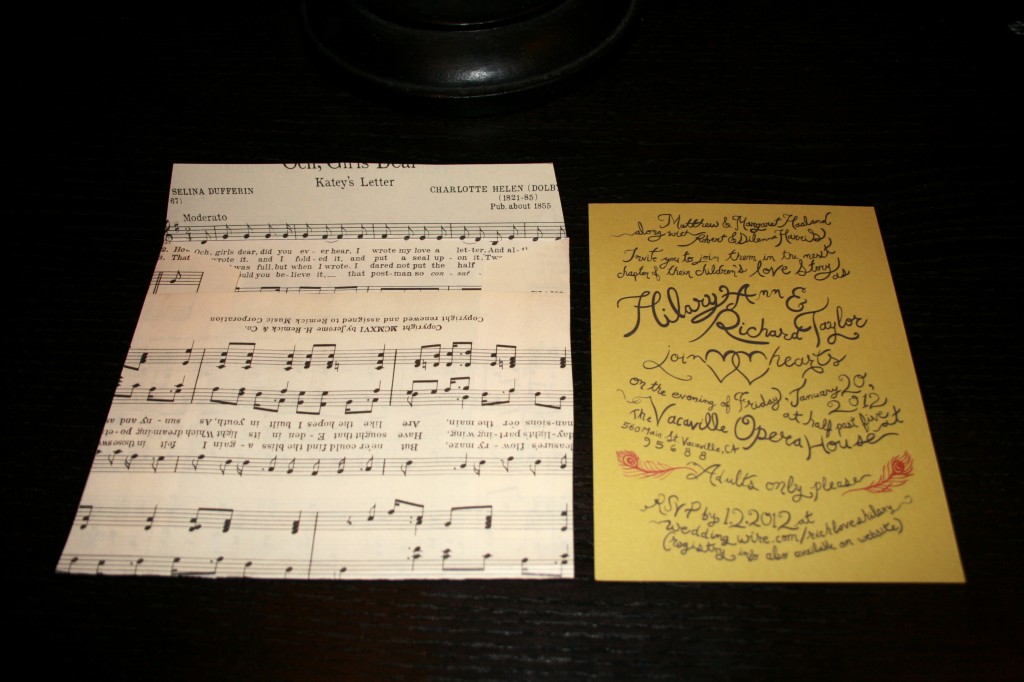 Och, Girls Dear
Katey's Letter
SELINA DUFFERIN
67)
CHARLOTTE HELEN (DOLB
(1821-85)
Pub. about 1855
Moderato
Och, girls dear, did you ev-er hear, I wrote my love a let-ter, And al-
2. That wrote it, and I fold-ed it, and put a seal up-on it, 'Tw
was full, but when I wrote, I dared not put the half
ould you be-lieve it,— that post-man so con-
Copyright renewed and assigned to Remick Music Corporation
Copyright MCMXVI by Jerome H. Remick & Co.
Are like the hopes I built in youth, As sun-ny and as
man-sions o'er the main,
day-light's part-ing wing, Have sought that E-den in its light Which dreaming po-et
pleasures' flow-'ry maze, But never could find the bliss a-gain I felt in those sw
Matthew & Margaret
along with Robert & Harris
Invite you to join them in the next
chapter of their children's love story as
Hilary Ann &
Richard Taylor
join hearts
on the evening of Friday, January 20,
2012
at half past five at
The Vacaville Opera House
560 Main St Vacaville, CA
95688
Adults only please
RSVP by 1.2.2012 at
wedding wire.com/richloveshilary
(registry info also available on website)